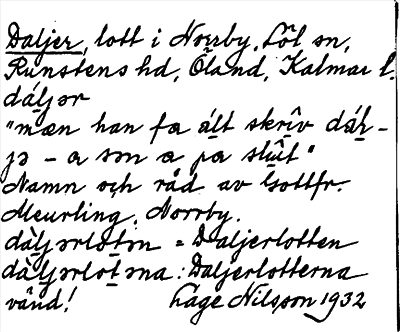 Daljer, lott i Norrby, Löt sn,
Runstens hd, Öland, Kalmar l.
dáljər
"mæn han fa ált skrîv dál-
jə - a sən a pa slût"
Namn och råd av Gottfr.
Meurling, Norrby.
dàljərlɔtən = Daljerlotten
dàljərlɔtəna: Daljerlotterna
vänd! Lage Nilsson 1932